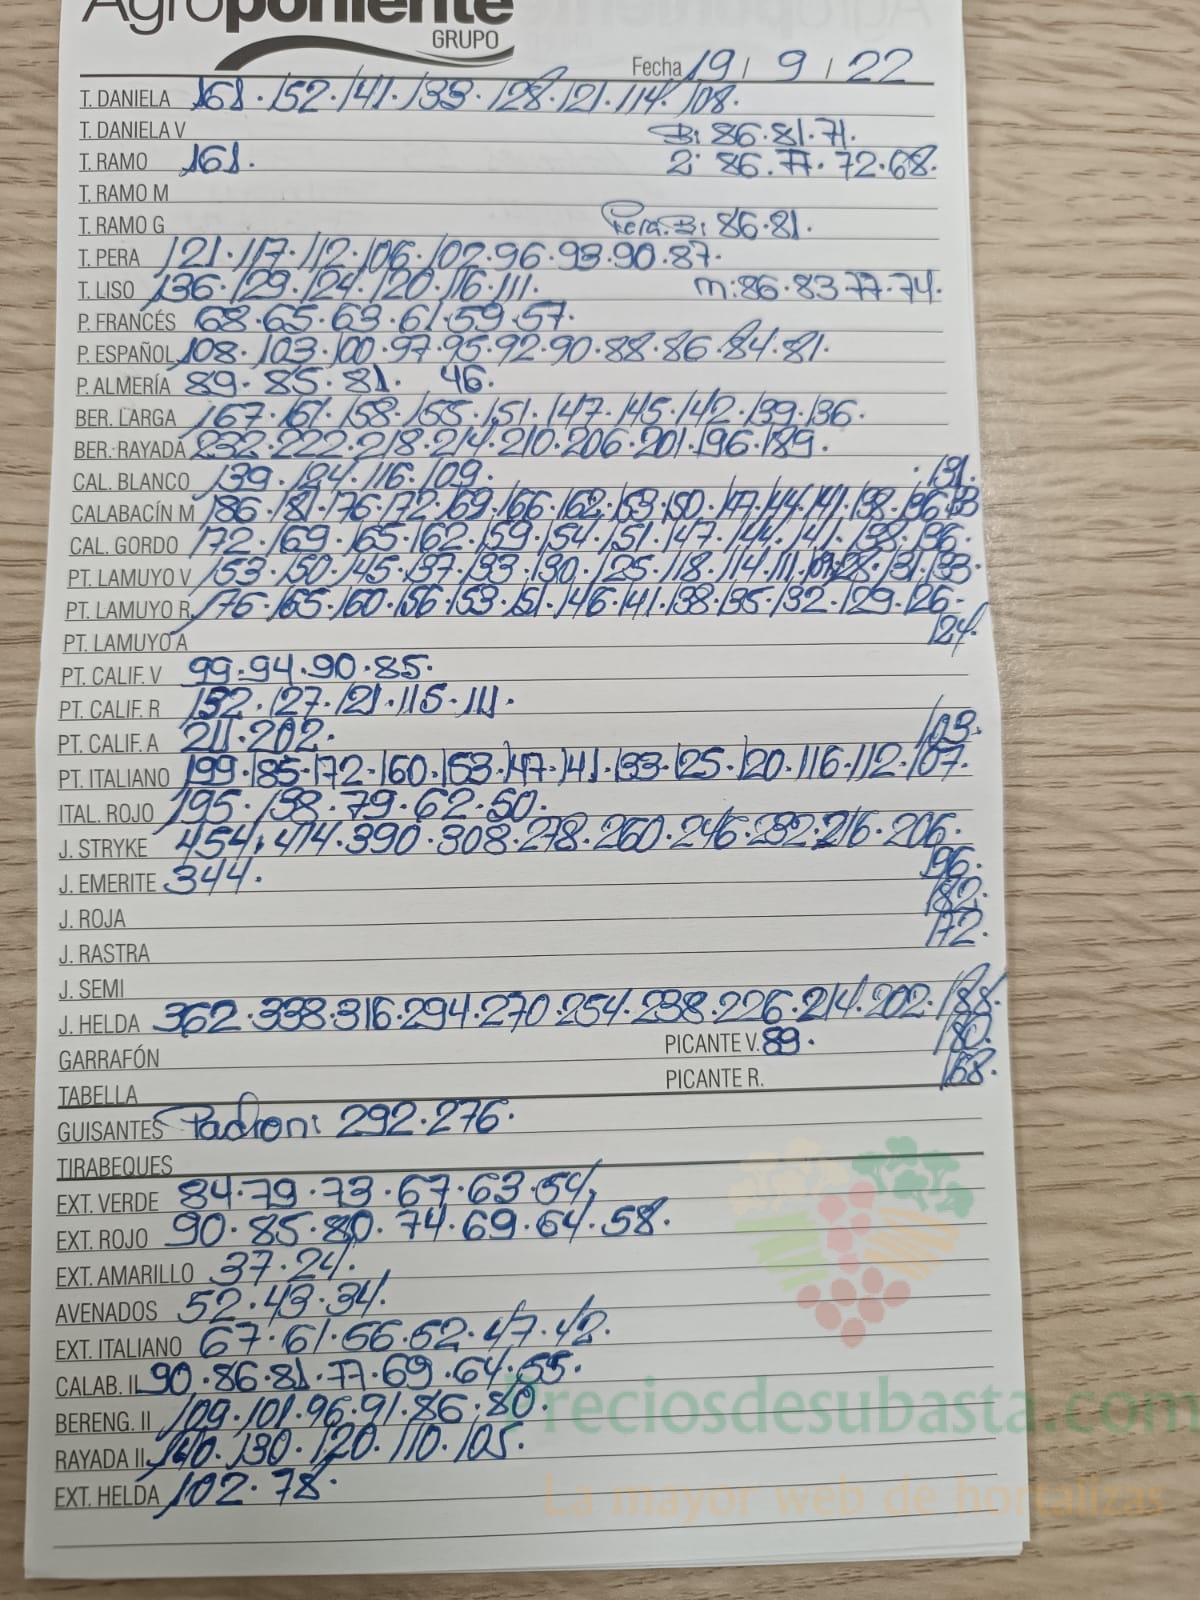 Agroponiente
GRUPO
Fecha 19 / 9 / 22
T. DANIELA 161. 152. 141. 133. 128. 121. 114. 108.
T. DANELA V B: 86.81.71.
T. RAMO 161. 2: 86.77.72.68.
T. RAMO M
T. RAMO G Pera.B: 86.81.
T. PERA 121.117.112.106.102.96.93.90.87.
T. LISO 136.129.124.120.116.111. m:86.83.77.74.
P. FRANCÉS 68.65.63.61.59.57.
P. ESPAÑOL 108.103.100.97.95.92.90.88.86.84.81.
P. ALMERÍA 89.85.81. 46.
BER. LARGA 167.161.158.155.151.147.145.142.139.136.
BER. RAYADA 232.222.218.214.210.206.201.196.189.
CAL. BLANCO 139.124.116.109. .131.
CALABACÍN M 186.181.176.172.169.166.162.153.150.147.144.141.138.136.133
CAL. GORDO 172.169.165.162.159.154.151.147.144.141.138.136.
PT. LAMUYO V 153.150.145.137.133.130.125.118.114.111. 128.131.133.
PT. LAMUYO R 176.165.160.156.153.151.146.141.138.135.132.129.126.
PT. LAMUYO A 124.
PT. CALIF. V 99.94.90.85.
PT. CALIF. R 132.127.121.115.111.
PT. CALIF. A 211.202. 103.
PT. ITALIANO 199.185.172.160.153.147.141.133.125.120.116.112.107.
ITAL. ROJO 195.138.79.62.50.
J. STRYKE 454.414.390.308.278.260.246.232.216.206.
J. EMERITE 344. 196.
J. ROJA 182.
J. RASTRA 172.
J. SEMI
J. HELDA 362.338.316.294.270.254.238.226.214.202.188.
GARRAFÓN PICANTE V. 89. 180.
TABELLA PICANTE R. 168.
GUISANTES Padron: 292.276.
TIRABEQUES
EXT. VERDE 84.79.73.67.63.54.
EXT. ROJO 90.85.80.74.69.64.58.
EXT. AMARILLO 37.24.
AVENADOS 52.43.34.
EXT. ITALIANO 67.61.56.52.47.42.
CALAB. II 90.86.81.77.69.64.55.
BERENG. II 109.101.96.91.86.80.
RAYADA II 140.130.120.110.105.
EXT. HELDA 102.78.
Preciosdesubasta.com
La mayor web de hortalizas